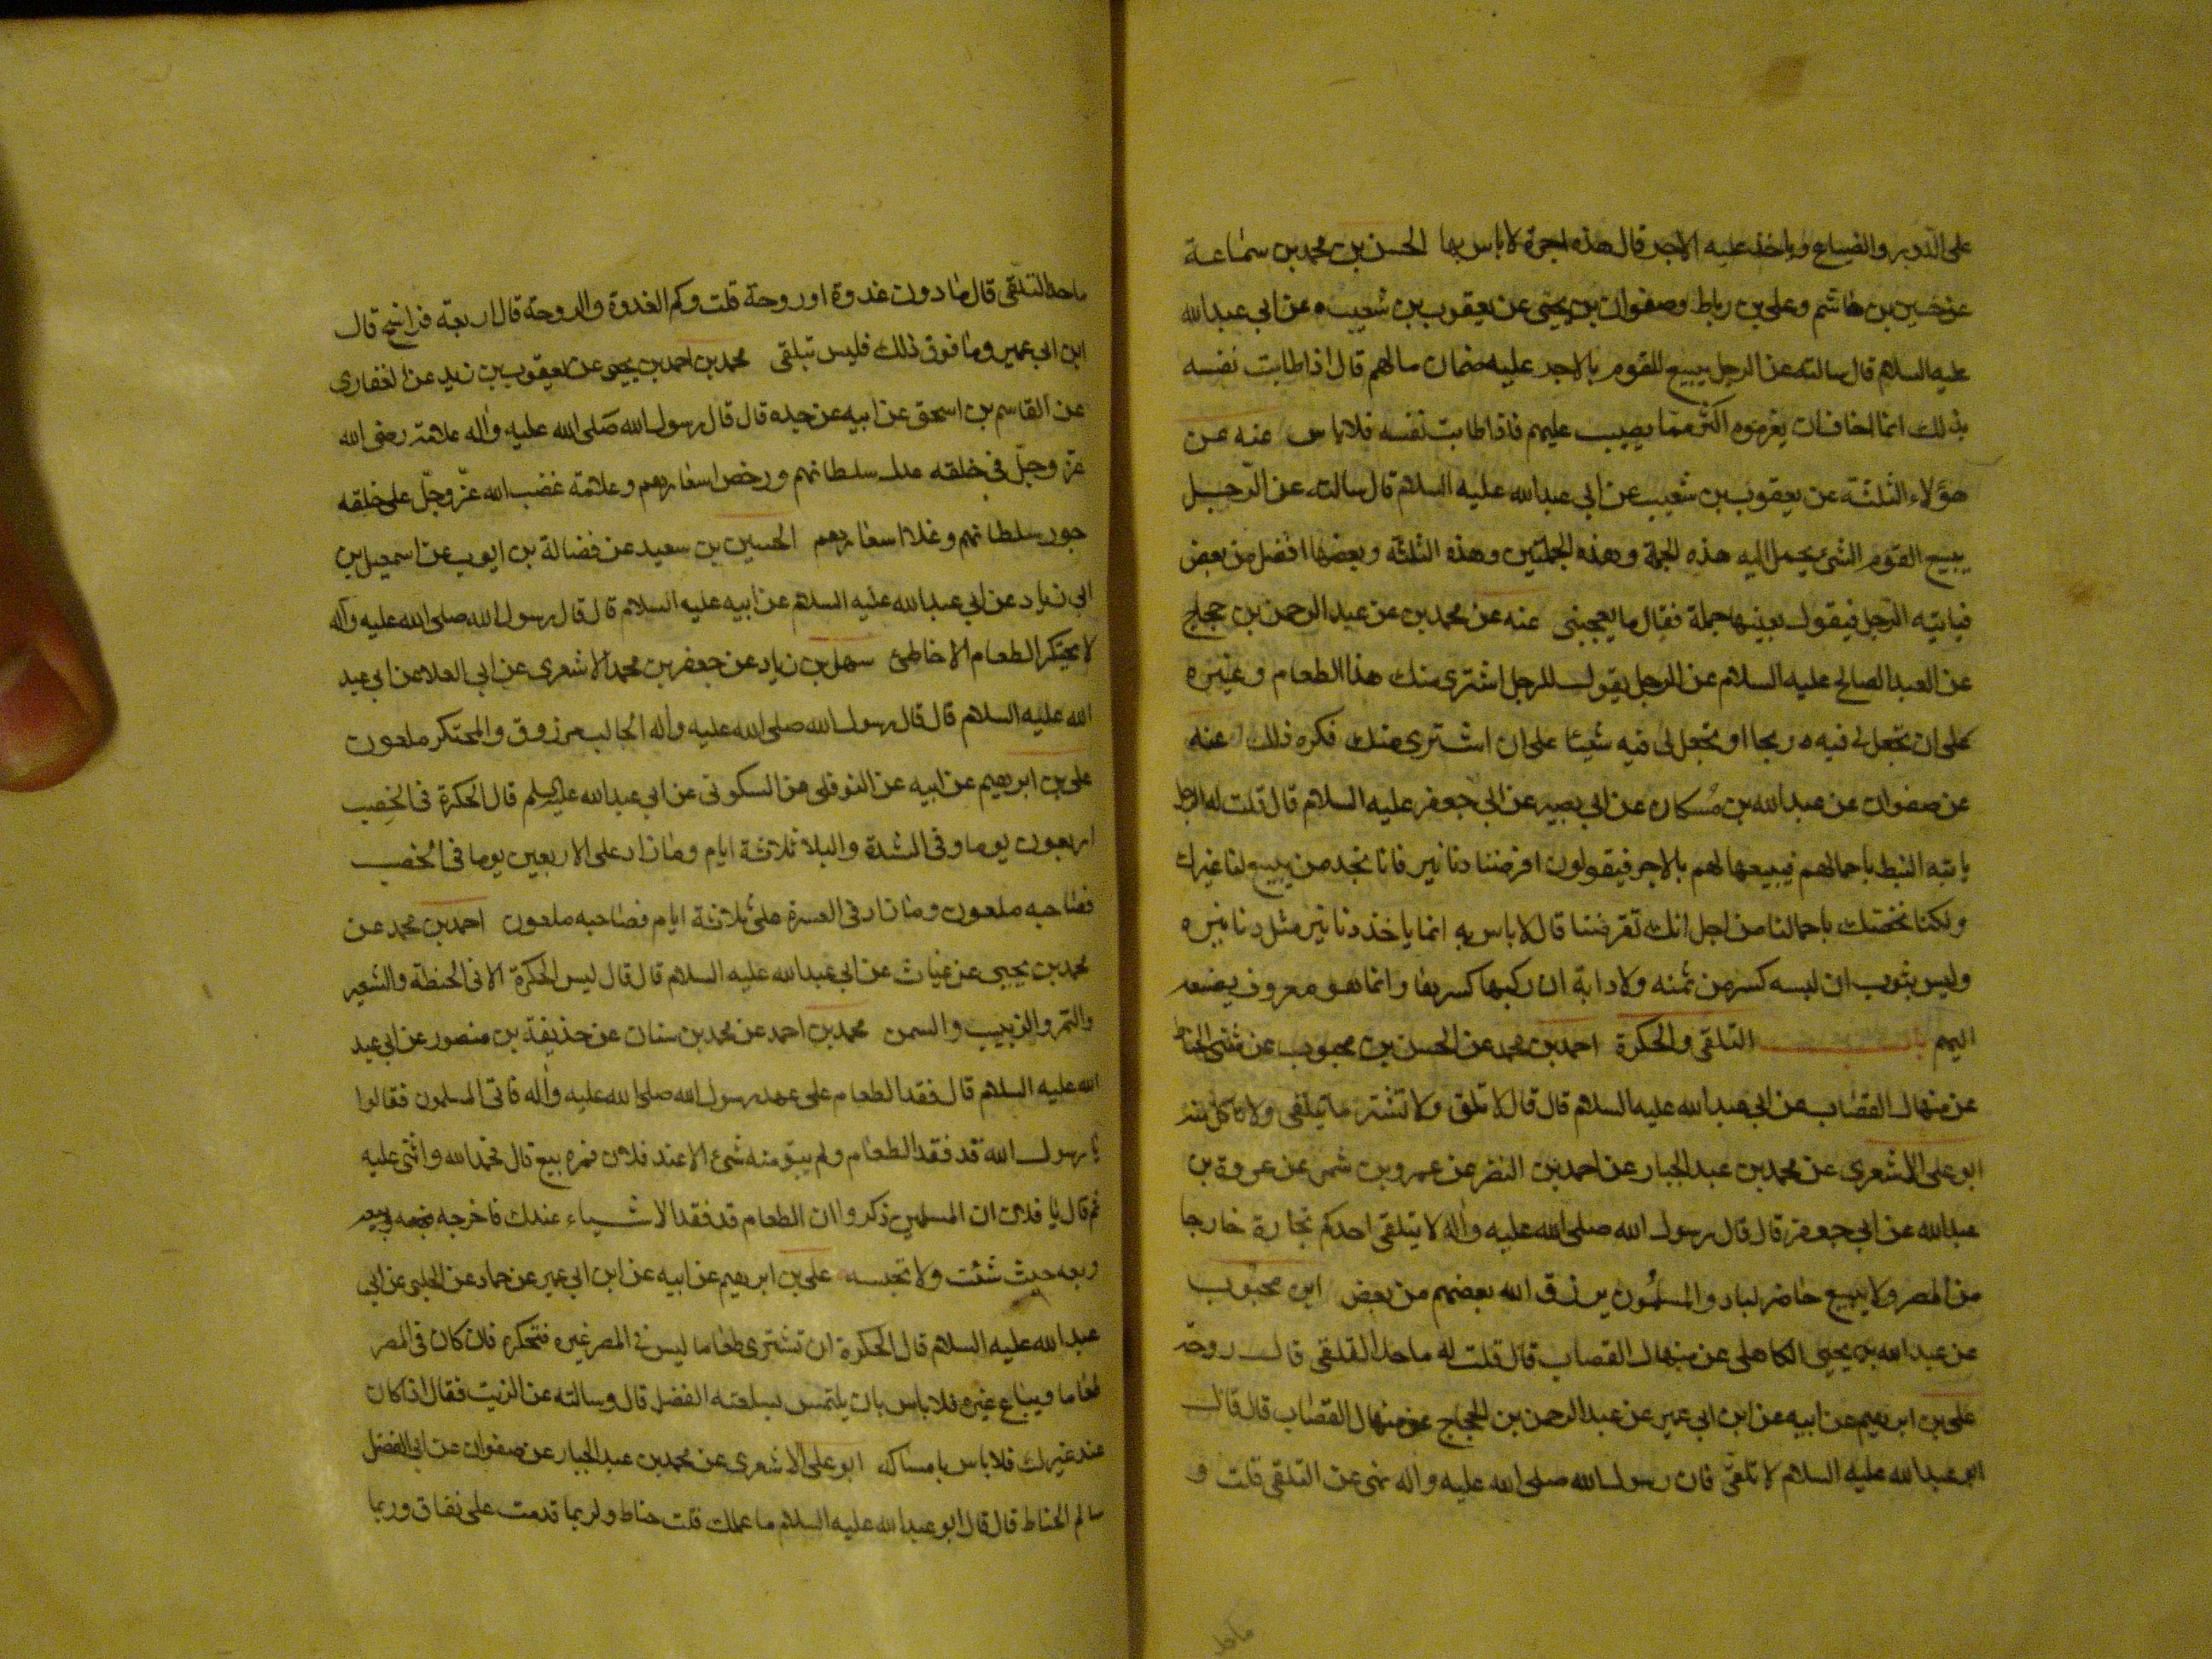 على الدور والضياع وياخذ عليه الاجر قال هذه اجرة لا باس بها الحسن بن محمد بن سماعة
عن حسين بن هاشم وعلي بن رباط وصفوان بن يحيى عن يعقوب بن شعيب عن ابي عبدالله
عليه السلام قال سالته عن الرجل يبيع للقوم بالاجر عليه ضمان مالهم قال اذا طابت نفسه
بذلك انما اخاف ان يغرموه اكثر مما يصيب عليهم فاذا طابت نفسه فلا باس عنه عن
هؤلاء الثلثة عن يعقوب بن شعيب عن ابي عبدالله عليه السلام قال سالته عن الرجل
يبيع القوم الشئ يحمل اليه هذه الجملة وهذه الجملتين وهذه الثلثة وبعضها افضل من بعض
فياتيه الرجل فيقول بعنيها جملة فقال ما يعجبنى عنه عن محمد بن عن عبد الرحمن بن حجاج
عن العبد الصالح عليه السلام عن الرجل يقول للرجل اشترى منك هذا الطعام وغيره
على ان تجعل لى فيه ربحا او تجعل لى فيه شيئا على ان اشترى منك فكره ذلك عنه
عن صفوان عن عبدالله بن مسكان عن ابي بصير عن ابي جعفر عليه السلام قال قلت له الرجل
ياتيه النبط باحمالهم فيبيعها لهم بالاجر فيقولون اقرضنا دنانير فانا نجد من يبيع لنا غيرك
ولكنا نخصك باحمالنا من اجل انك تقرضنا قال لا باس به انما ياخذ دنانير مثل دنانيره
وليس بثوب ان لبسه كسر من ثمنه ولا دابة ان ركبها كسرها وانما هو معروف يصنعه
اليهم باب التلقى والحكرة احمد بن محمد عن الحسن بن محبوب عن مثنى الحناط
عن منهال القصاب عن ابي عبدالله عليه السلام قال قال لا تلق ولا تشتر ما يتلقى ولا تاكل منه
ابو على الاشعرى عن محمد بن عبد الجبار عن احمد بن النضر عن عمرو بن شمر عن عروة بن
عبدالله عن ابي جعفر قال قال رسول الله صلى الله عليه واله لا يتلقى احدكم تجارة خارجا
من المصر ولا يبيع حاضر لباد والمسلمون يرزق الله بعضهم من بعض ابن محبوب
عن عبد الله بن يحيى الكاهلى عن منهال القصاب قال قلت له ما حد التلقى قال روحة
على بن ابرهيم عن ابيه عن ابن ابي عمير عن عبد الرحمن بن الحجاج عن منهال القصاب قال قال
ابو عبدالله عليه السلام لا تلقى فان رسول الله صلى الله عليه واله نهى عن التلقى قلت و
ما حد
ما حد التلقى قال ما دون غدوة او روحة قلت وكم الغدوة والروحة قال اربعة فراسخ قال
ابن ابي عمير وما فوق ذلك فليس بتلقى محمد بن احمد بن يحيى عن يعقوب بن زيد عن الغفارى
عن القاسم بن اسحق عن ابيه عن جده قال قال رسول الله صلى الله عليه واله علامة رضى الله
عز وجل في خلقه عدل سلطانهم ورخص اسعارهم وعلامة غضب الله عز وجل على خلقه
جور سلطانهم وغلا اسعارهم الحسين بن سعيد عن فضالة بن ايوب عن اسمعيل بن
ابي زياد عن ابي عبدالله عليه السلام عن ابيه عليه السلام قال قال رسول الله صلى الله عليه واله
لا يحتكر الطعام الا خاطئ سهل بن زياد عن جعفر بن محمد الاشعرى عن ابي العلا عن ابي عبد
الله عليه السلام قال قال رسول الله صلى الله عليه واله الجالب مرزوق والمحتكر ملعون
على بن ابرهيم عن ابيه عن النوفلى عن السكونى عن ابي عبدالله عليه السلم قال الحكرة في الخصب
اربعون يوما وفى الشدة والبلا ثلاثة ايام وما زاد على الاربعين يوما فى الخصب
فصاحبه ملعون وما زاد فى العسرة على ثلاثة ايام فصاحبه ملعون احمد بن محمد عن
محمد بن يحيى عن غياث عن ابي عبدالله عليه السلام قال قال ليس الحكرة الا فى الحنطة والشعير
والتمر والزبيب والسمن محمد بن احمد عن محمد بن سنان عن حذيفة بن منصور عن ابي عبد
الله عليه السلام قال فقد الطعام على عهد رسول الله صلى الله عليه واله فاتى المسلمون فقالوا
يا رسول الله قد فقد الطعام ولم يبق منه شئ الا عند فلان فمره ببيع قال فحمد الله واثنى عليه
ثم قال يا فلان ان المسلمين ذكروا ان الطعام قد فقد الا شياء عندك فاخرجه
وبعه حيث شئت ولا تحبسه على بن ابرهيم عن ابيه عن ابن ابي عمير عن حماد عن الحلبى عن ابي
عبد الله عليه السلام قال الحكرة ان تشترى طعاما ليس فى المصر غيره فتحكره فان كان فى المصر
طعاما ويباع غيره فلا باس بان يلتمس بسلعته الفضل قال وسالته عن الزيت فقال اذا كان
عند غيرك فلا باس بامساكه ابو على الاشعرى عن محمد بن عبد الجبار عن صفوان عن ابي الفضل
سالم الحناط قال قال ابو عبدالله عليه السلام ما عملك قلت حناط ولربما قدمت على نفاق وربما